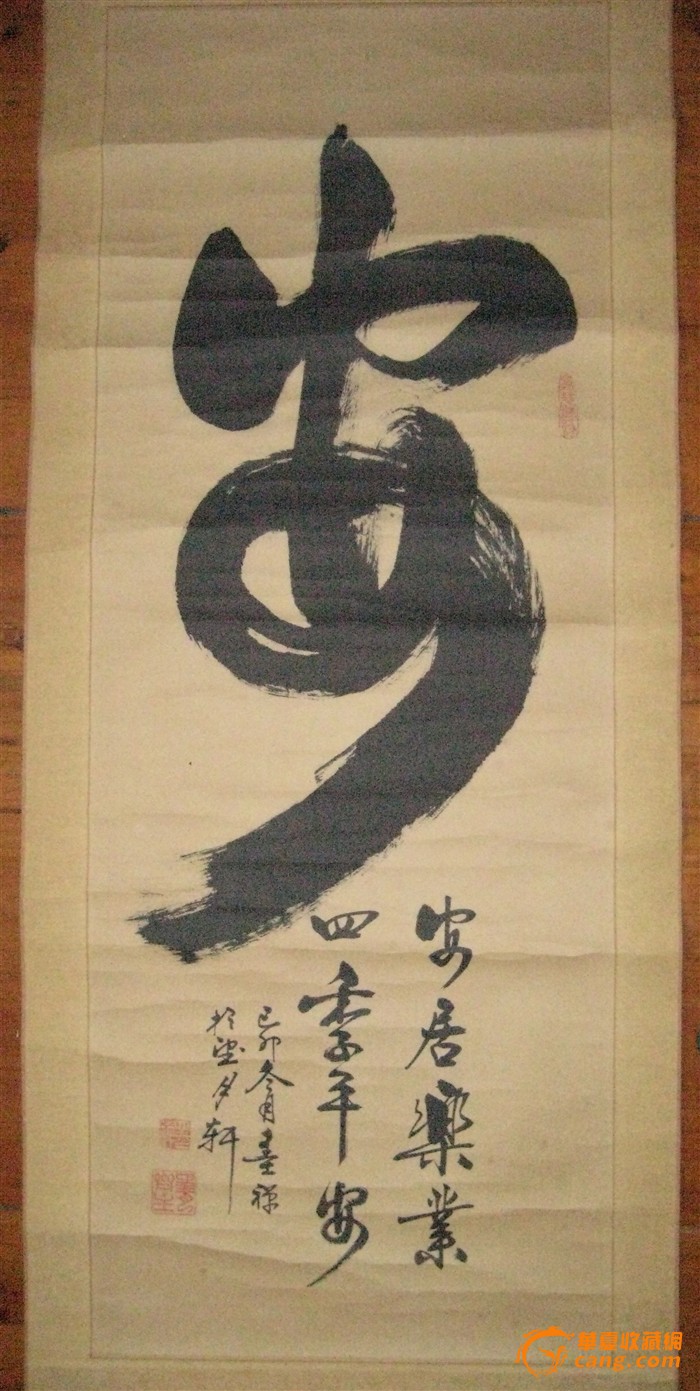 安
安居樂業
四季平安
己卯冬月書禅
於望夕軒
華夏收藏網
cang.com